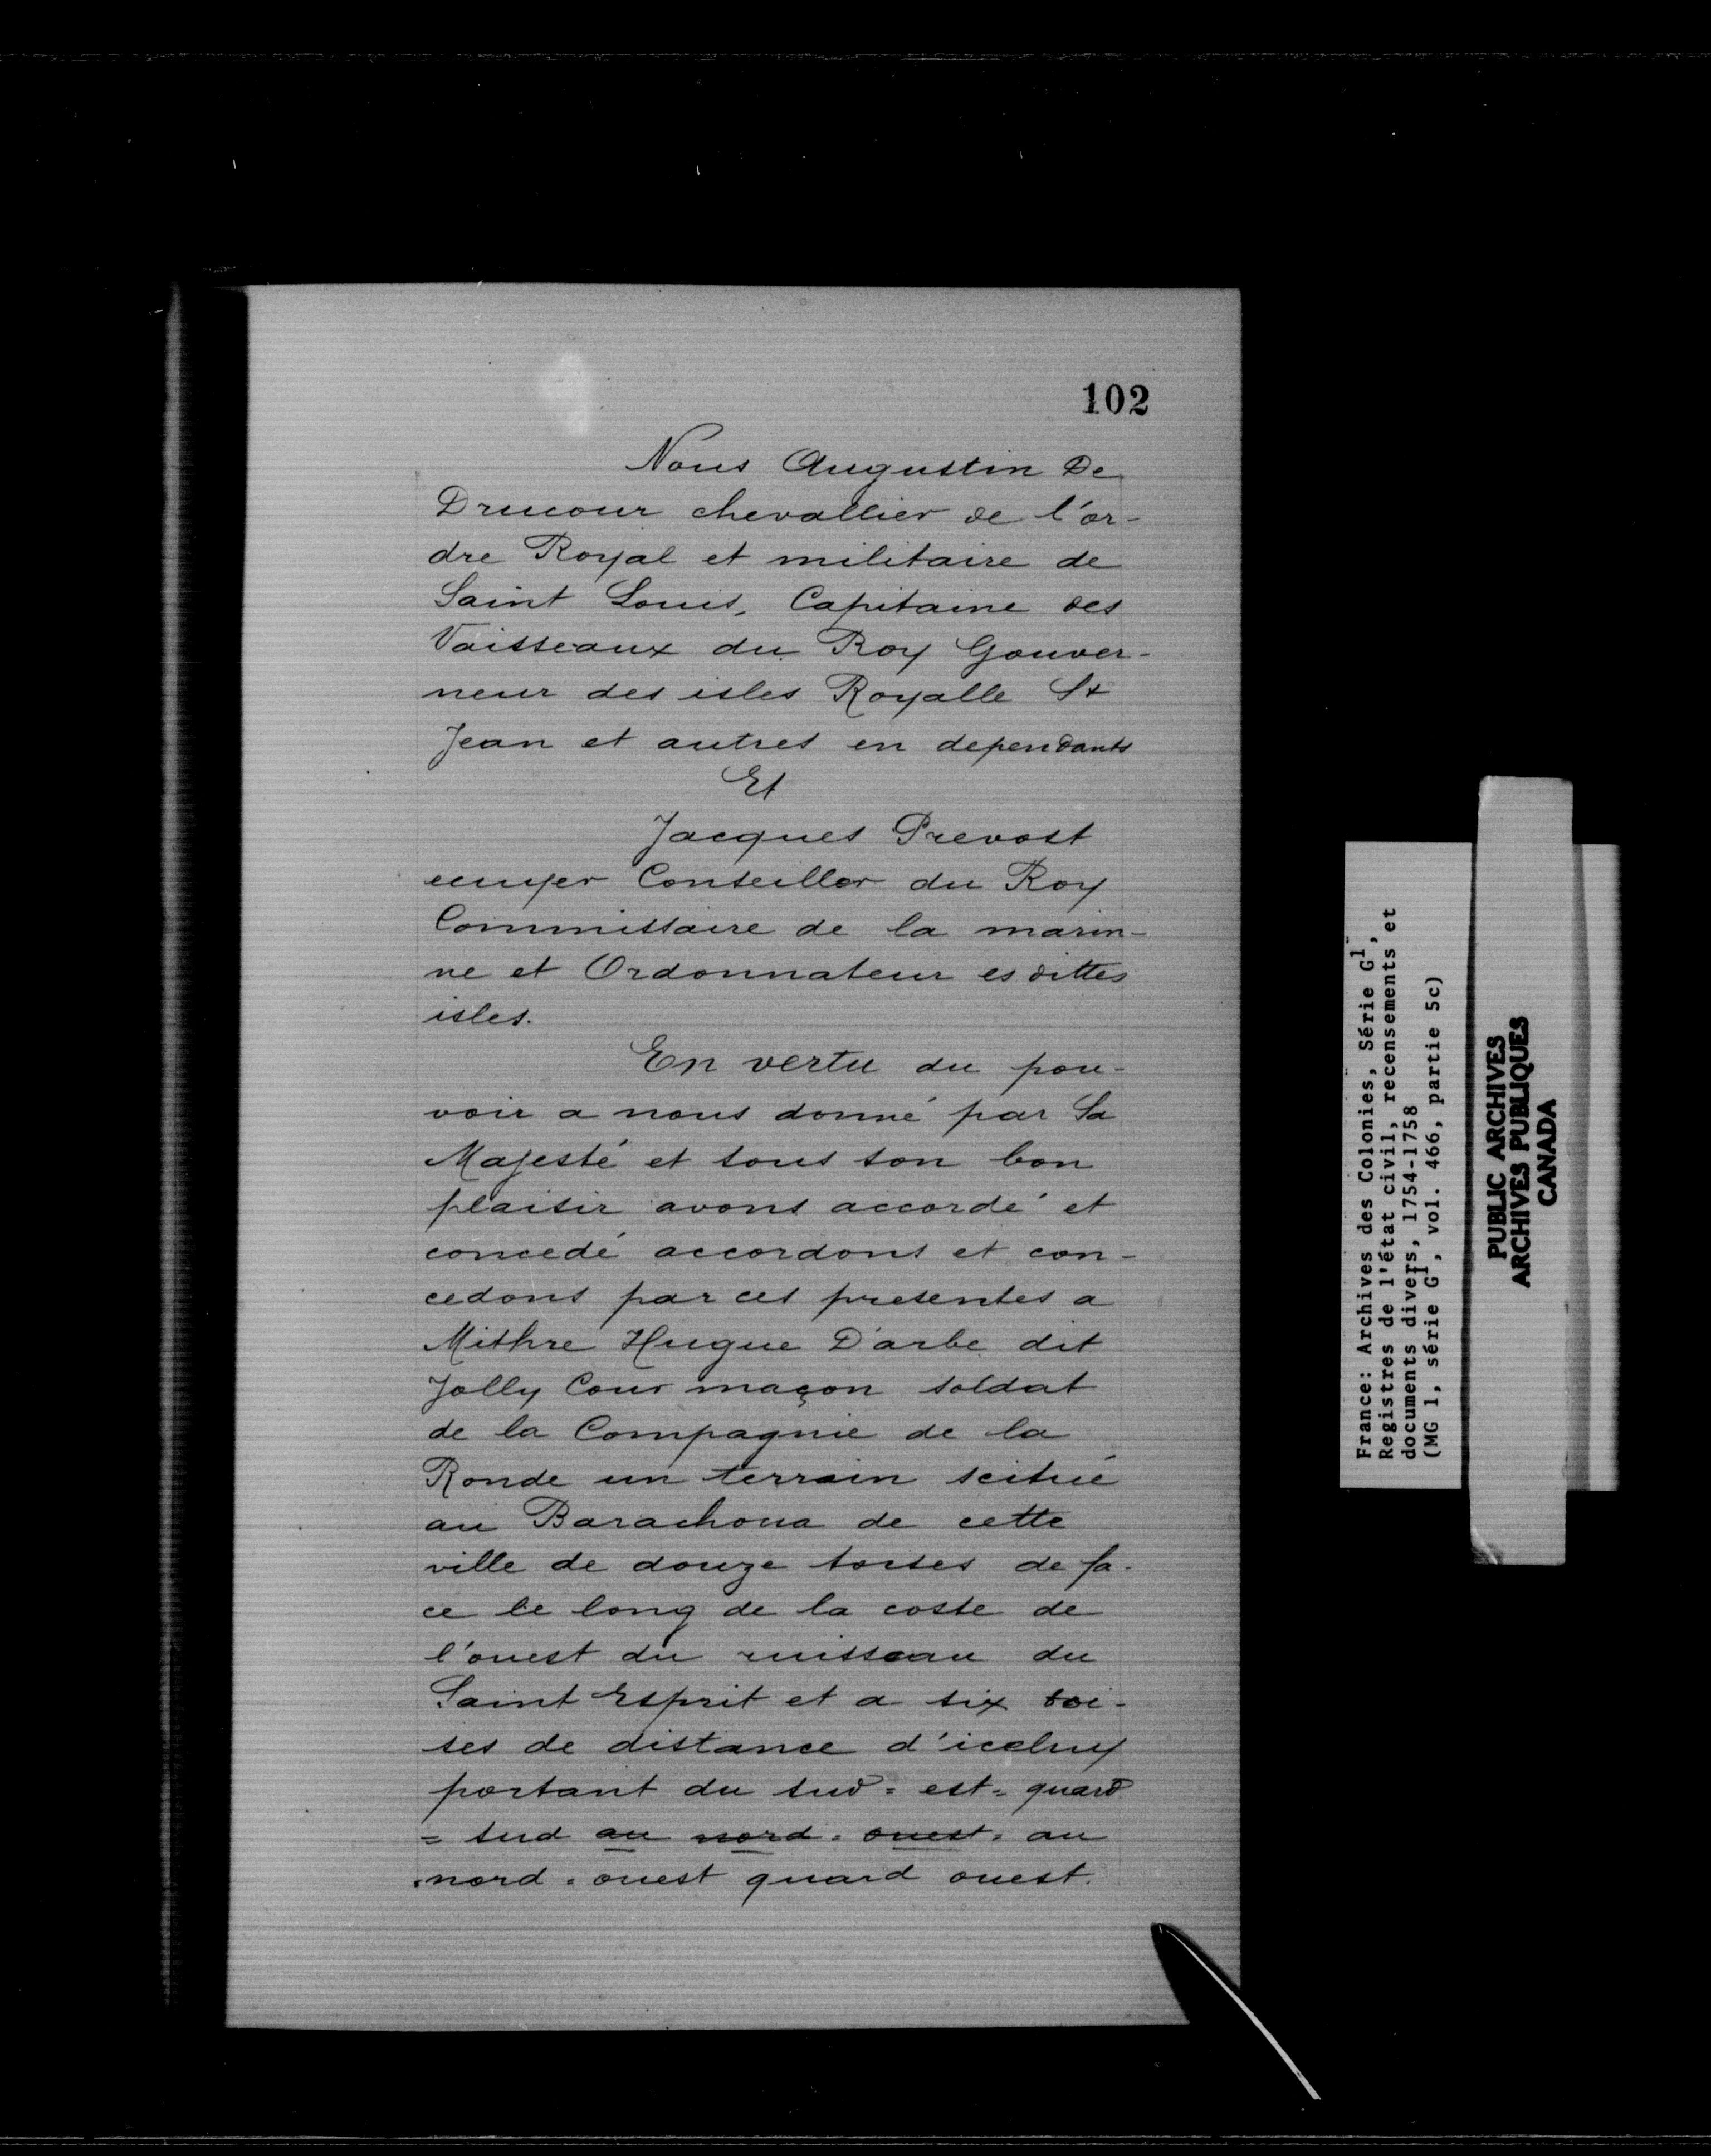 102
Nous Augustin De
Drucour chevallier de l'or-
dre Royal et militaire de
Saint Louis, Capitaine des
Vaisseaux du Roy Gouver-
neur des isles Royalle St
Jean et autres en dependants
Et
Jacques Prevost
ecuyer Conseiller du Roy
Commissaire de la marin-
ne et Ordonnateur es dittes
isles.
En vertu du pou-
voir a nous donné par Sa
Majesté et sous son bon
plaisir avons accordé et
concedé accordons et con-
cedons par ces presentes a
Mithre Hugue D'arbe dit
Jolly Cour maçon soldat
de la Compagnie de la
Ronde un terrain scitué
au Barachoua de cette
ville de douze toises de fa-
ce le long de la coste de
l'ouest du ruisseau du
Saint Esprit et a six toi-
ses de distance d'iceluy
portant du sud = est = quard
= sud au nord = ouest = au
nord = ouest quard ouest.
France: Archives des Colonies, Série G1,
Registres de l'état civil, recensements et
documents divers, 1754-1758
(MG 1, série G1, vol. 466, partie 5c)
PUBLIC ARCHIVES
ARCHIVES PUBLIQUES
CANADA